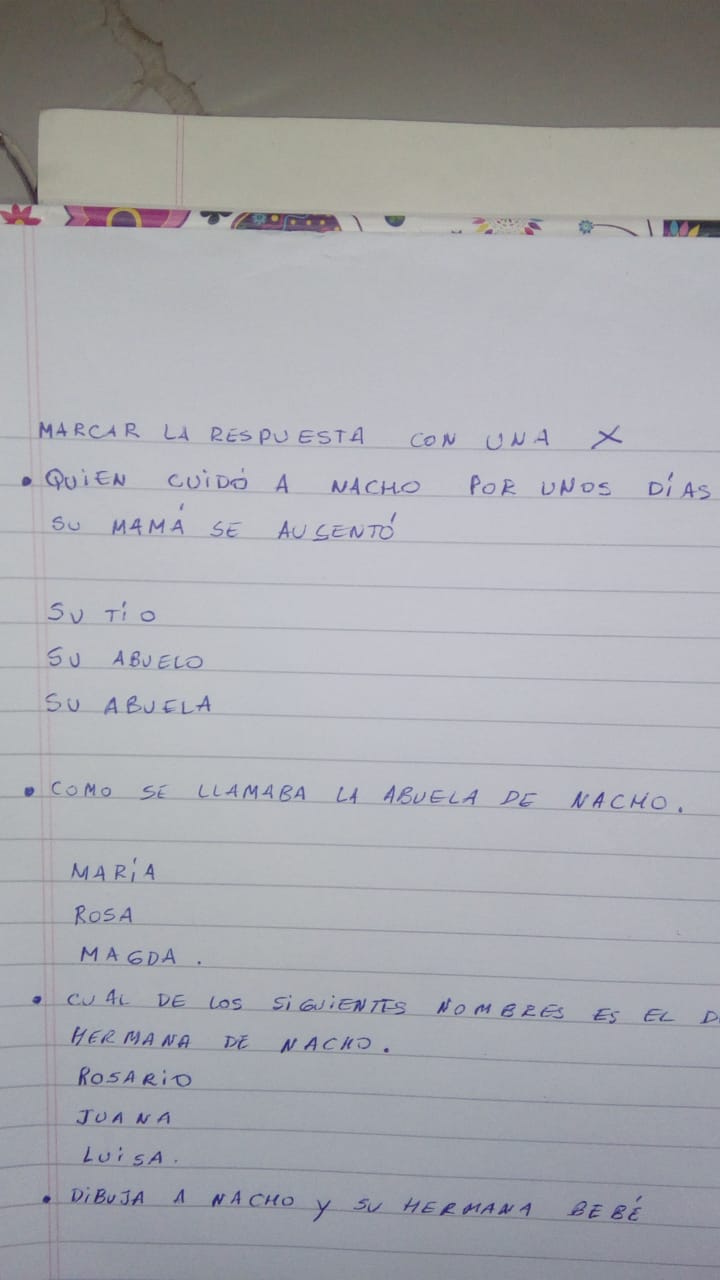 MARCAR LA RESPUESTA CON UNA X
• QUIEN CUIDÓ A NACHO POR UNOS DÍAS
SU MAMÁ SE AUSENTÓ
SU TÍO
SU ABUELO
SU ABUELA
• COMO SE LLAMABA LA ABUELA DE NACHO.
MARÍA
ROSA
MAGDA.
• CUAL DE LOS SIGUIENTES NOMBRES ES EL
HERMANA DE NACHO.
ROSARIO
JUANA
LUISA.
• DIBUJA A NACHO Y SU HERMANA BEBÉ